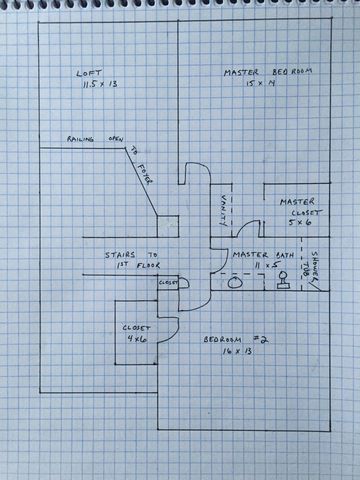 LOFT
11.5 x 13
MASTER BEDROOM
15 x 14
RAILING OPEN
TO
FOYER
VANITY
MASTER
CLOSET
5 x 6
STAIRS TO
1ST FLOOR
MASTER BATH
11 x 5
SHOWER
TUB
CLOSET
CLOSET
4x6
BEDROOM #2
16 x 13